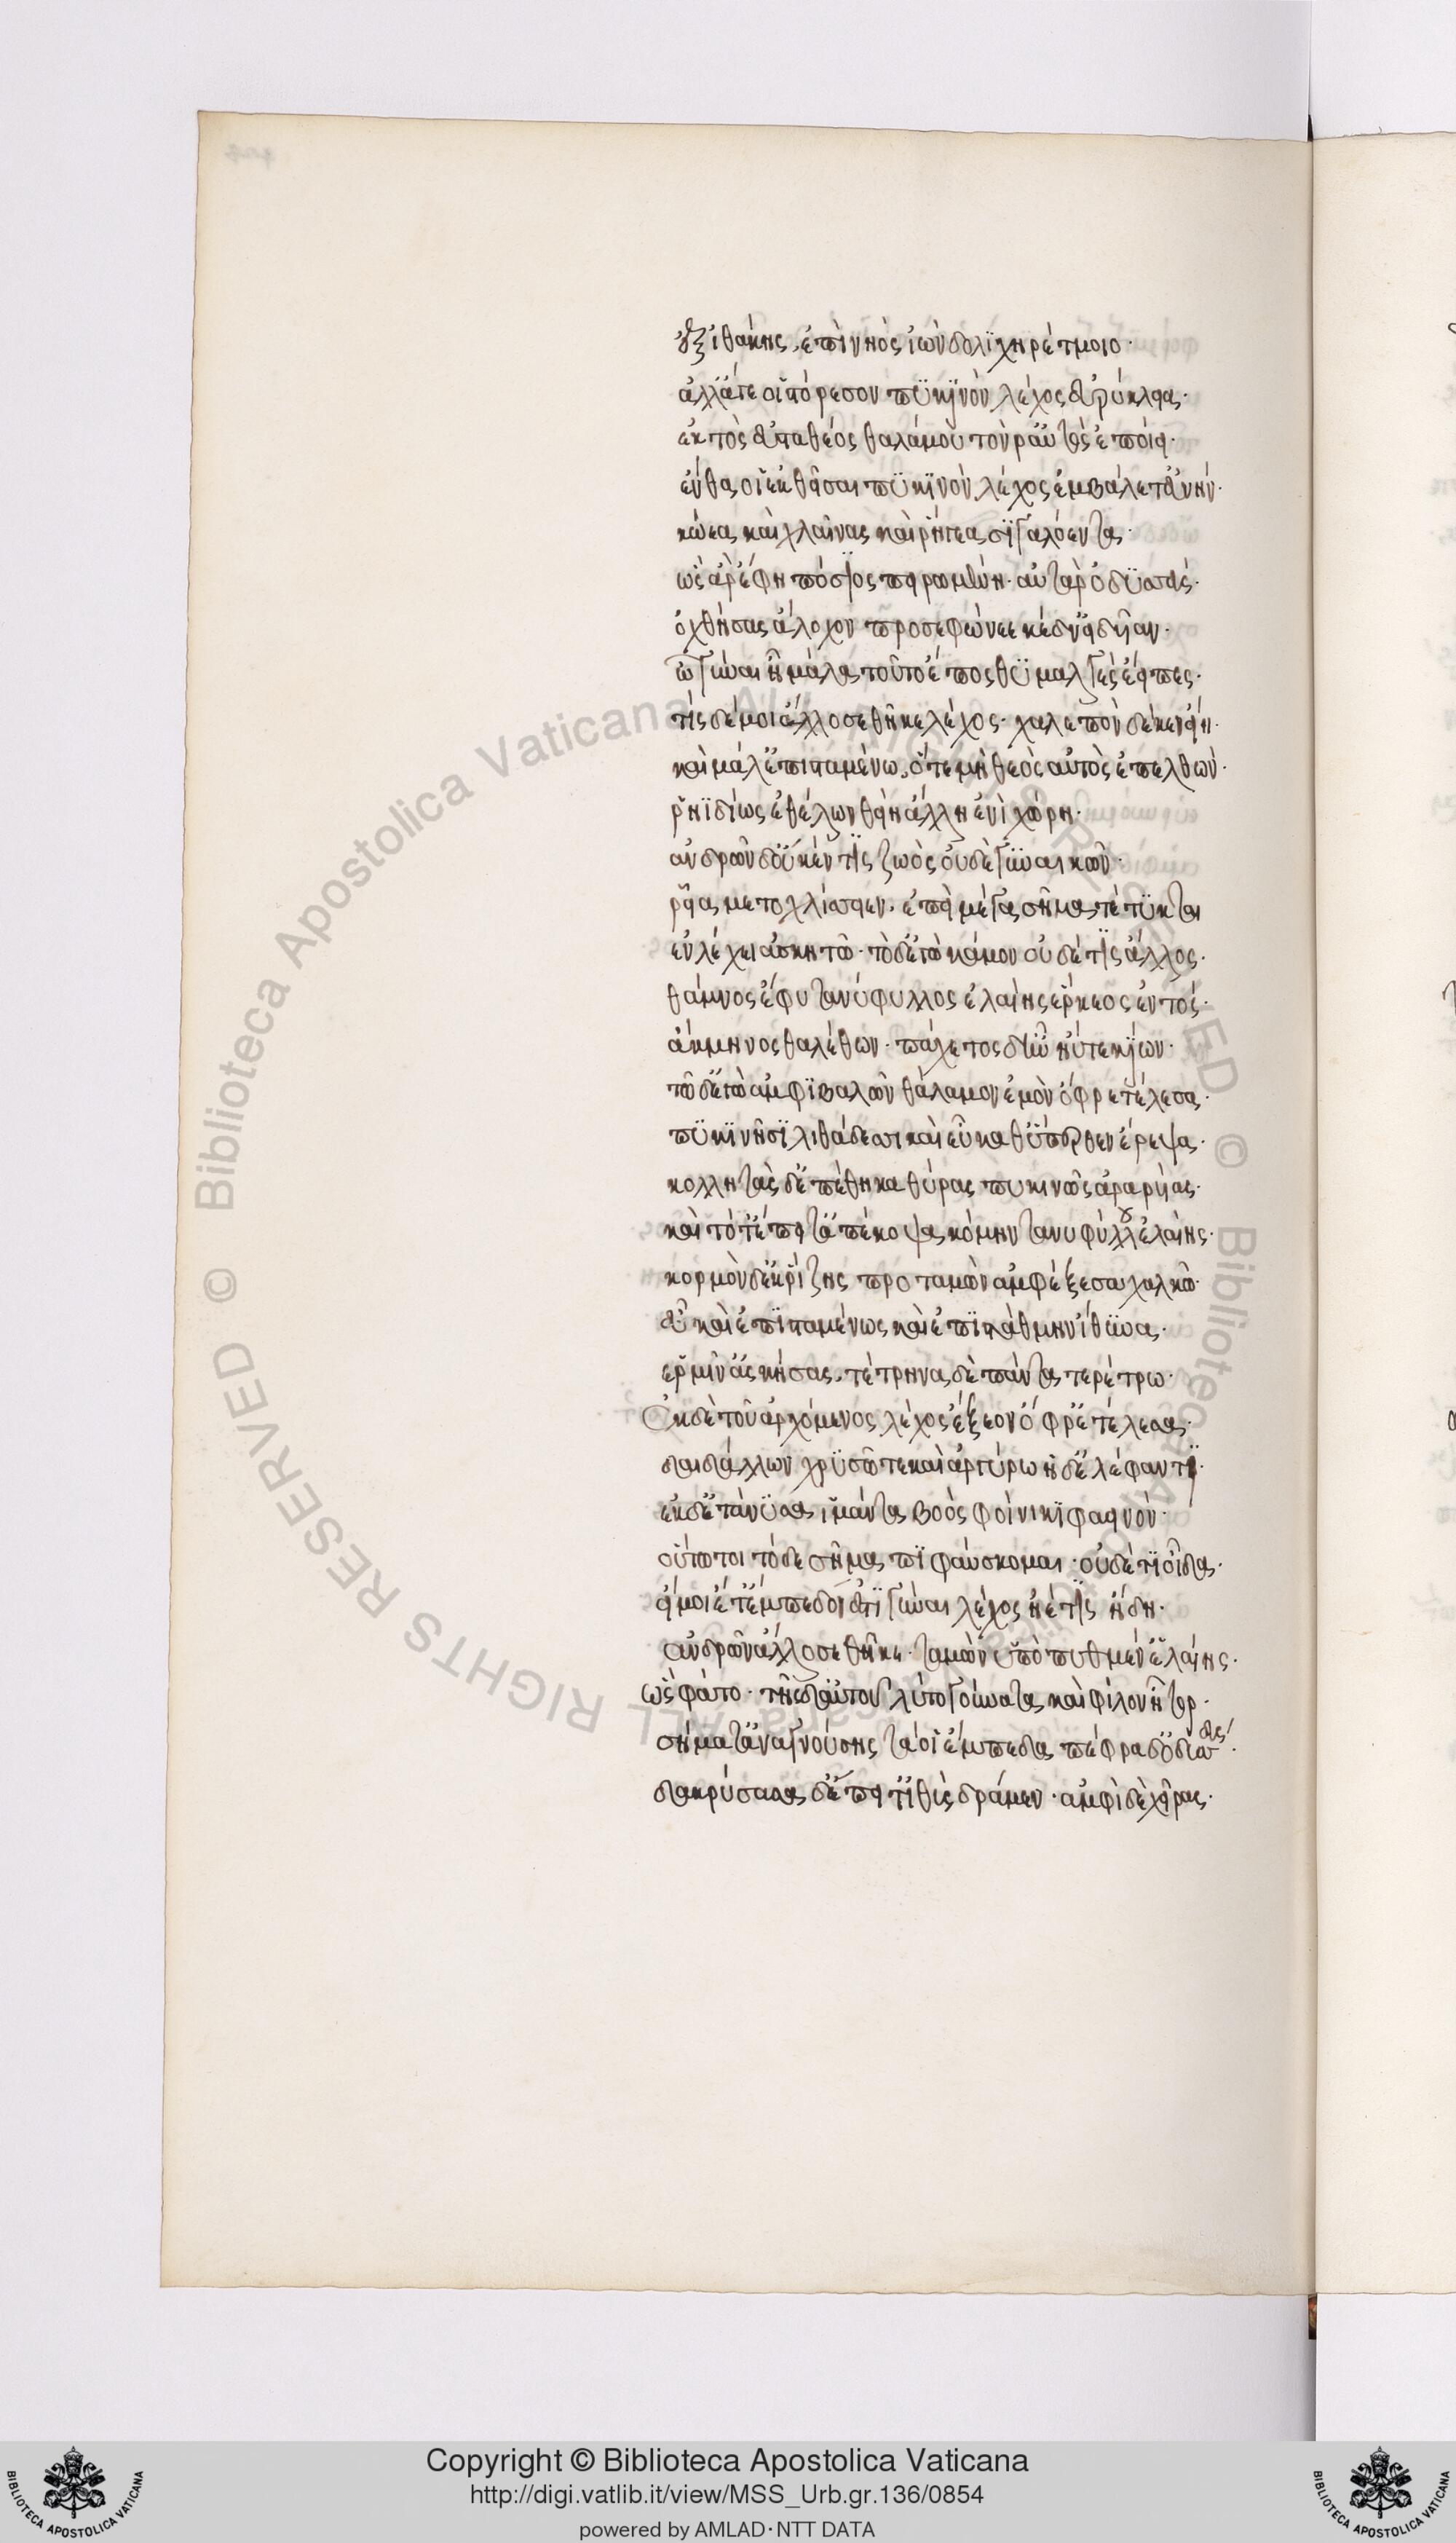 ἐξ ἰθάκης, ἐπὶ νηὸς ἰὼν δολιχηρέτμοιο·
ἀλλ' ἄγε οἱ στόρεσον πυκινὸν λέχος εὐρύκλεια·
ἐκτὸς ἐϋσταθέος θαλάμου τόν ῥ' αὐτὸς ἐποίει·
ἔνθα οἱ ἐκθεῖσαι πυκινὸν λέχος ἐμβάλετ' εὐνήν·
κώεα καὶ χλαίνας καὶ ῥήγεα σιγαλόεντα·
ὣς ἄρ' ἔφη πόσιος πειρωμένη· αὐτὰρ ὀδυσσεύς·
ὀχθήσας ἄλοχον προσεφώνεε κέδν' εἰδυῖαν·
ὦ γύναι ἦ μάλα τοῦτο ἔπος θυμαλγὲς ἔειπες·
τίς δέ μοι ἄλλοσε θῆκε λέχος· χαλεπὸν δέ κεν εἴη·
καὶ μάλ' ἐπισταμένω, ὅτε μὴ θεὸς αὐτὸς ἐπελθὼν·
ῥηϊδίως ἐθέλων θείη ἄλλη ἐνὶ χώρη·
ἀνδρῶν δ' οὔ κέν τις ζωὸς οὐδὲ γύναι κῶν·
ῥεῖα μετοχλίσσειεν· ἐπεὶ μέγα σῆμα τέτυκται
ἐν λέχει ἀσκητῶ· τὸ δ' ἐγὼ κάμον οὐδέ τις ἄλλος·
θάμνος ἔφυ τανύφυλλος ἐλαίης ἕρκεος ἐντός·
ἀκμηνὸς θαλέθων· πάχετος δ' ἦν ἠΰτε κίων·
τῶ δ' ἐγὼ ἀμφιβαλὼν θάλαμον ἐμὸν ὄφρ' ἐτέλεσα·
πυκινῆσι λιθάδεσσι καὶ εὖ καθύπερθεν ἔρεψα·
κολλητὰς δ' ἐπέθηκα θύρας πυκινῶς ἀραρυίας·
καὶ τότ' ἔπειτ' ἀπέκοψα κόμην τανυφύλλου ἐλαίης·
κορμὸν δ' ἐκ ῥίζης προταμὼν ἀμφέξεσα χαλκῶ
εὖ καὶ ἐπισταμένως καὶ ἐπὶ στάθμην ἴθυνα·
ἑρμῖν' ἀσκήσας, τέτρηνα δὲ πάντα τερέτρω·
Ἐκ δὲ τοῦ ἀρχόμενος λέχος ἔξεον ὄφρ' ἐτέλεσσα·
δαιδάλλων χρυσῶ τε καὶ ἀργύρω ἠδ' ἐλέφαντι·
ἐκ δ' ἐτάνυσσα ἱμάντα βοὸς φοίνικι φαεινὸν·
οὕτω τοι τόδε σῆμα πιφαύσκομαι· οὐδέ τι οἶδα·
εἴ μοι ἔτ' ἔμπεδόν ἐστι γύναι λέχος ἠέ τις ἤδη·
ἀνδρῶν ἄλλοσε θῆκε· ταμὼν ὑπὸ πυθμέν' ἐλαίης·
ὣς φάτο· τῆς δ' αὐτοῦ λύτο γούνατα καὶ φίλον ἦτορ·
σήματ' ἀναγνούσης τά οἱ ἔμπεδα πέφραδ' ὀδυσσεύς·
δακρύσασα δ' ἔπειτ' ἰθὺς δράμεν· ἀμφὶ δὲ χεῖρας·
Copyright © Biblioteca Apostolica Vaticana
http://digi.vatlib.it/view/MSS_Urb.gr.136/0854
powered by AMLAD·NTT DATA